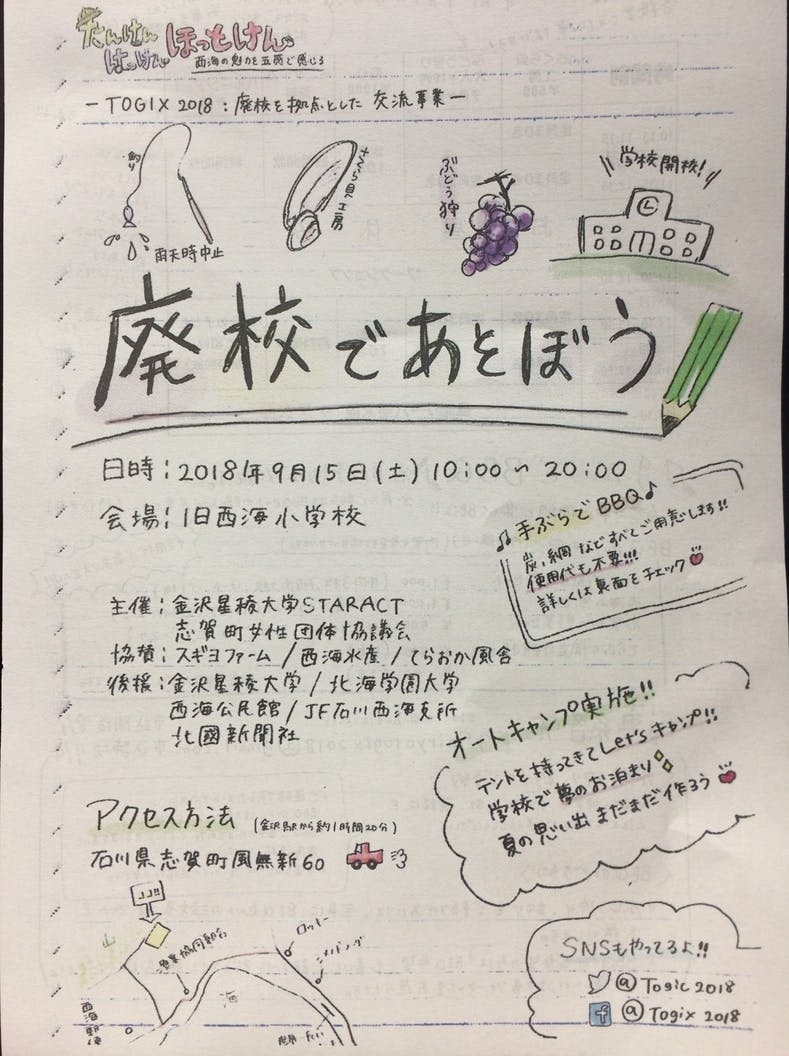 たんけん
はっけん ほっとけん
西海の魅力を五感で感じる
ーTOGIX 2018：廃校を拠点とした 交流事業ー
釣り
雨天時中止
さくら貝工房
ぶどう狩り
学校開校！
廃校であそぼう
日時：2018年9月15日(土) 10:00～20:00
会場：旧西海小学校
♫ 手ぶらでBBQ♪
炭、網などすべてご用意します!!
使用代も不要!!!
詳しくは裏面をチェック
主催：金沢星稜大学STARACT
志賀町女性団体協議会
協賛：スギヨファーム/西海水産/てらおか風舎
後援：金沢星稜大学/北海学園大学
西海公民館/JF石川西海支所
北國新聞社
オートキャンプ実施!!
テントを持ってきてLet'sキャンプ!!
学校で夢のお泊まり
夏の思い出まだまだ作ろう
アクセス方法 (金沢駅から約1時間20分)
石川県志賀町風無新60
ココ!!
山
漁業協同組合
海
ロッキー
西海郵便
世界一
SNSもやってるよ!!
@Togic2018
@Togix 2018